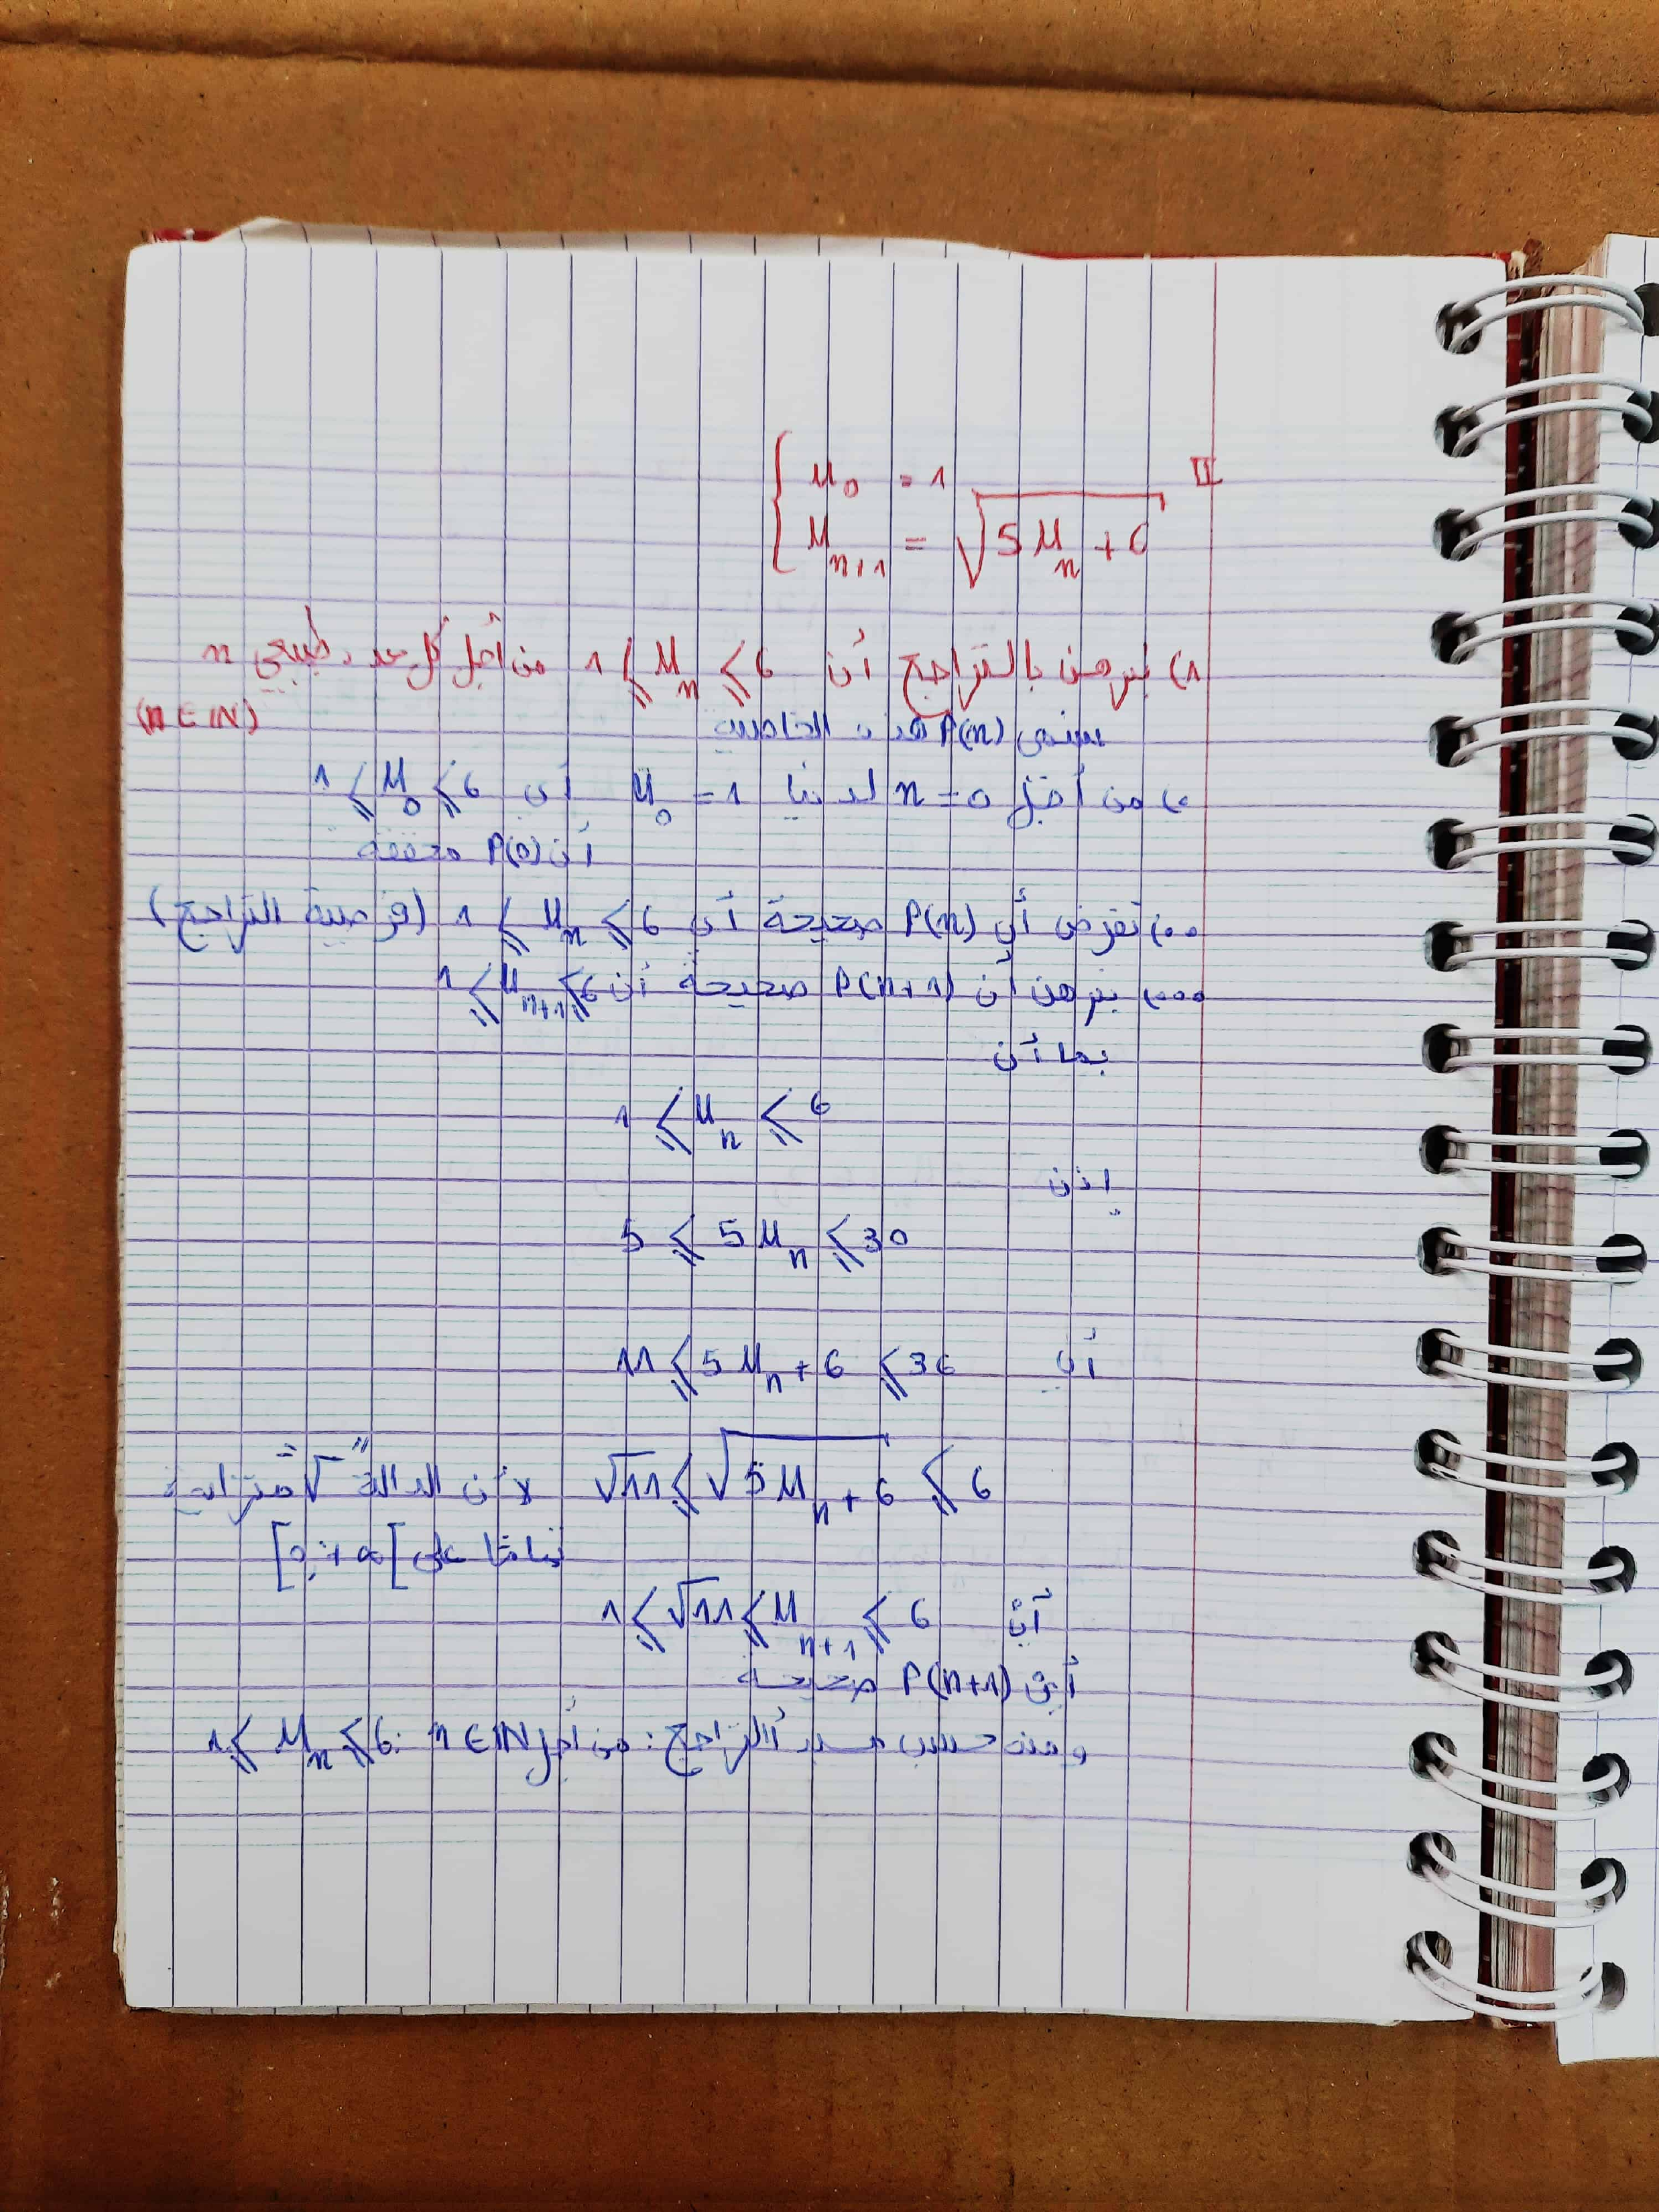 II
{ u₀ = 1
u_{n+1} = √(5u_n + 6)
1) برهن بالتراجع أن 1 ⩽ u_n ⩽ 6 من أجل كل عدد طبيعي n
(n ∈ IN)
نسمي P(n) هذه الخاصية
•) من أجل n = 0 لدينا u₀ = 1 أي 1 ⩽ u₀ ⩽ 6
أن P(0) محققة
••) نفرض أن P(n) صحيحة أي 1 ⩽ u_n ⩽ 6 (فرضية التراجع)
•••) نبرهن أن P(n+1) صحيحة أن 1 ⩽ u_{n+1} ⩽ 6
بما أن
1 ⩽ u_n ⩽ 6
إذن
5 ⩽ 5u_n ⩽ 30
أي 11 ⩽ 5u_n + 6 ⩽ 36
√11 ⩽ √(5u_n + 6) ⩽ 6 لأن الدالة "√" متزايدة
تماما على [0; +∞[
أي 1 ⩽ √11 ⩽ u_{n+1} ⩽ 6
أي P(n+1) صحيحة
ومنه حسب مبدأ التراجع: من أجل n ∈ IN: 1 ⩽ u_n ⩽ 6